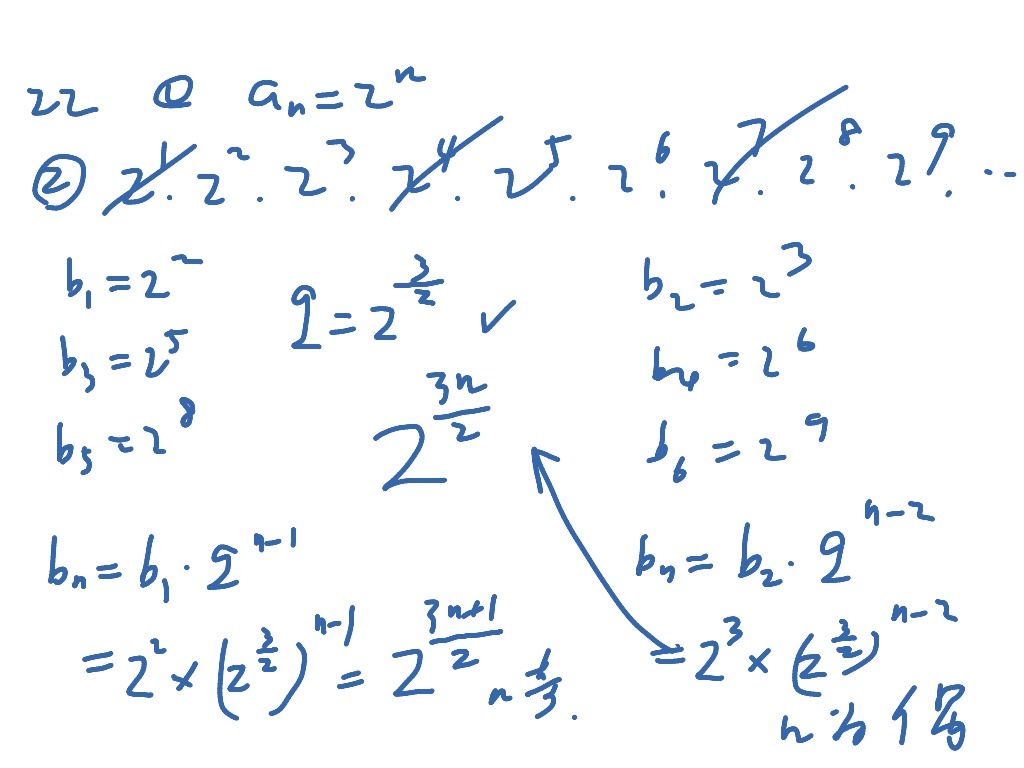 22 ① aₙ = 2ⁿ
② 2¹. 2². 2³. 2⁴. 2⁵. 2⁶. 2⁷. 2⁸. 2⁹. ...
b₁ = 2²
b₃ = 2⁵
b₅ = 2⁸
q = 2^(3/2) ✓
2^(3n/2)
b₂ = 2³
b₄ = 2⁶
b₆ = 2⁹
bₙ = b₁ · q^(n-1)
= 2² × (2^(3/2))^(n-1) = 2^((3n+1)/2) n
bₙ = b₂ · q^(n-2)
= 2³ × (2^(3/2))^(n-2)
n为偶